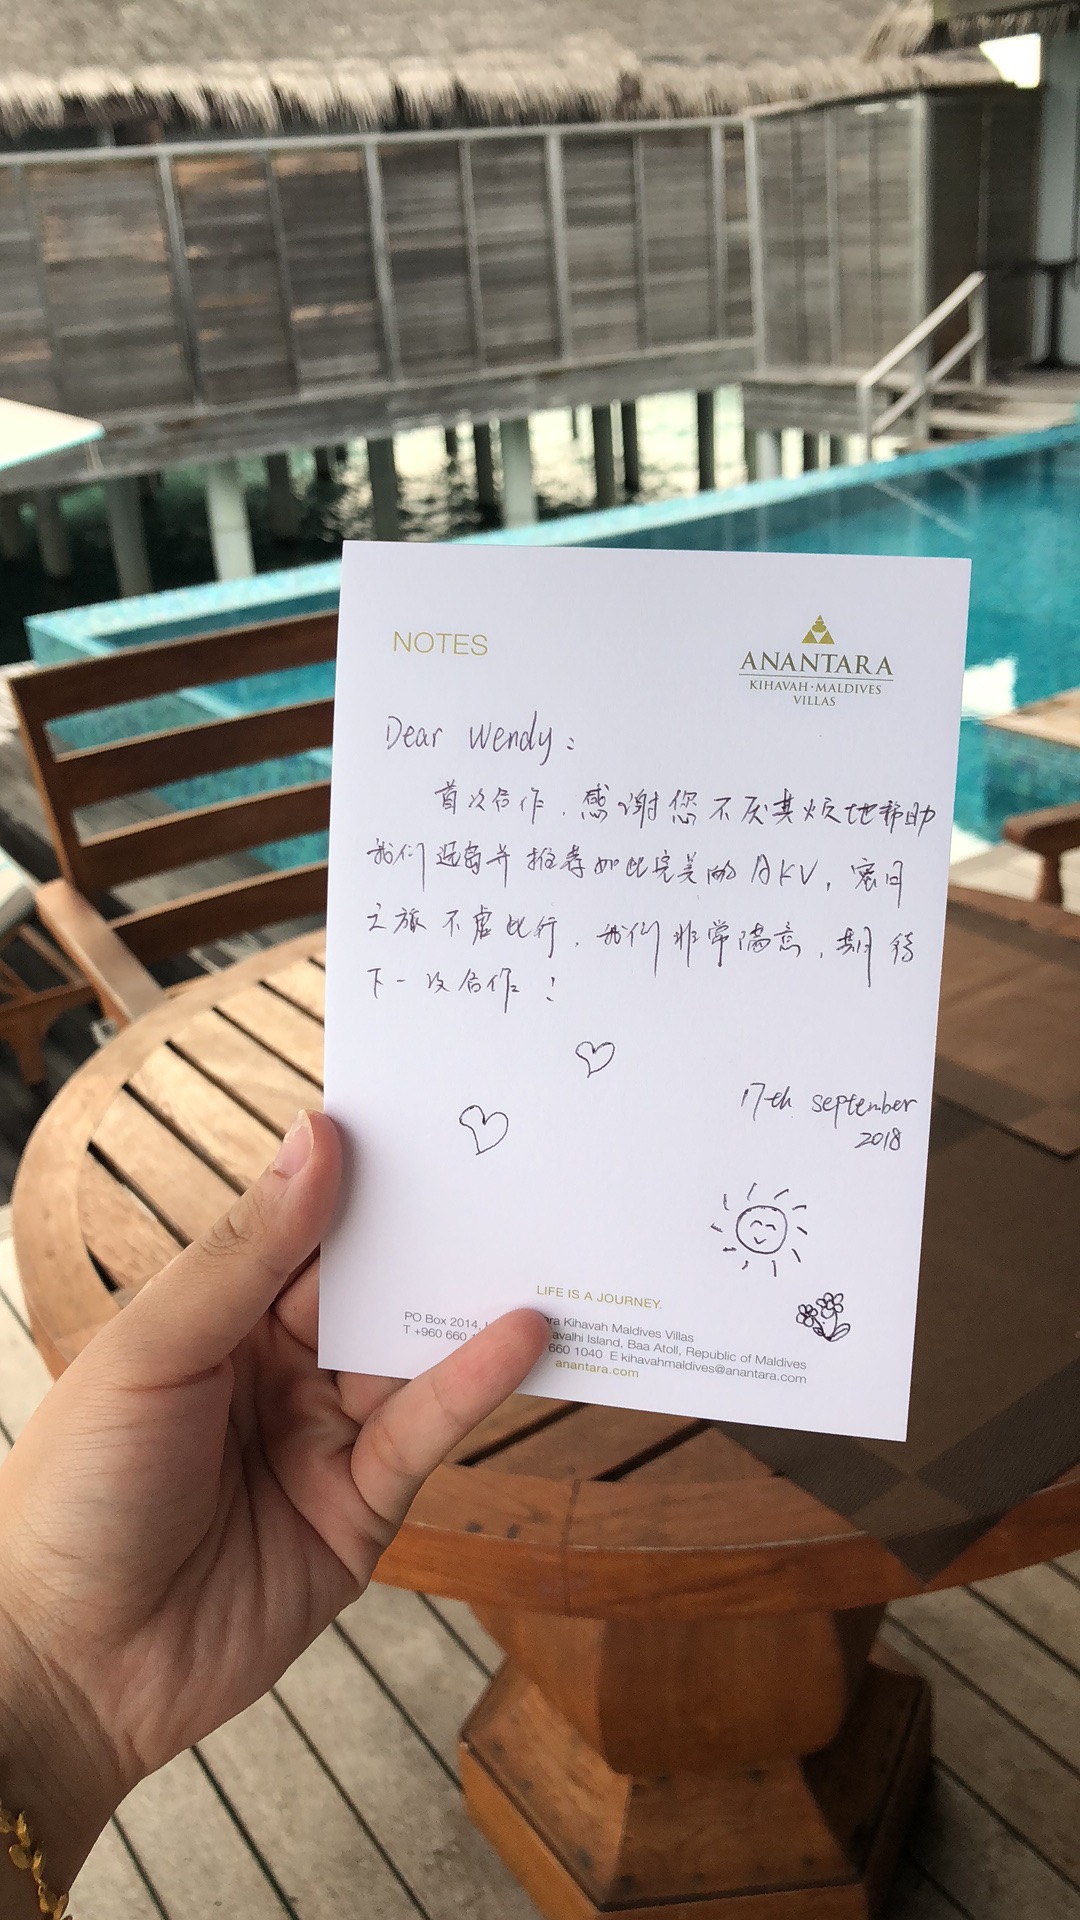 NOTES
ANANTARA
KIHAVAH·MALDIVES
VILLAS
Dear Wendy:
首次合作，感谢您不厌其烦地帮助
我们选岛并推荐如此完美的AKV，蜜月
之旅不虚此行，我们非常满意，期待
下一次合作！
17th september
2018
LIFE IS A JOURNEY.
PO Box 2014, Kihavah Maldives Villas
Island, Baa Atoll, Republic of Maldives
T +960 660 660 1040 E kihavahmaldives@anantara.com
anantara.com